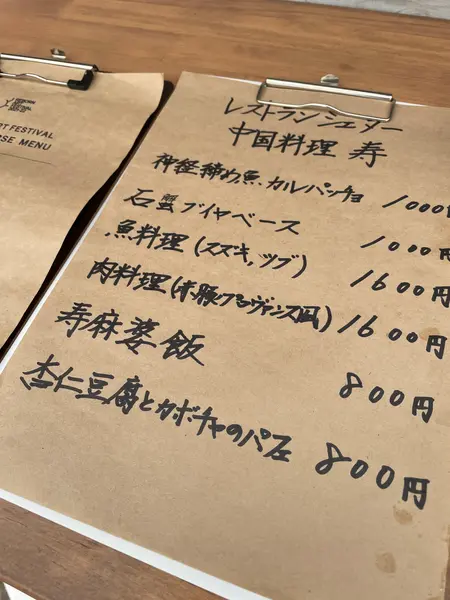 RT FESTIVAL
RSE MENU
レストランシェター
中国料理 寿
神経締め魚カルパッチョ 1000円
石蟹ブイヤベース 1000円
魚料理(スズキ,ツブ) 1600円
肉料理(赤豚プロヴァンス風) 1600円
寿麻婆飯 800円
杏仁豆腐とカボチャのパフェ 800円